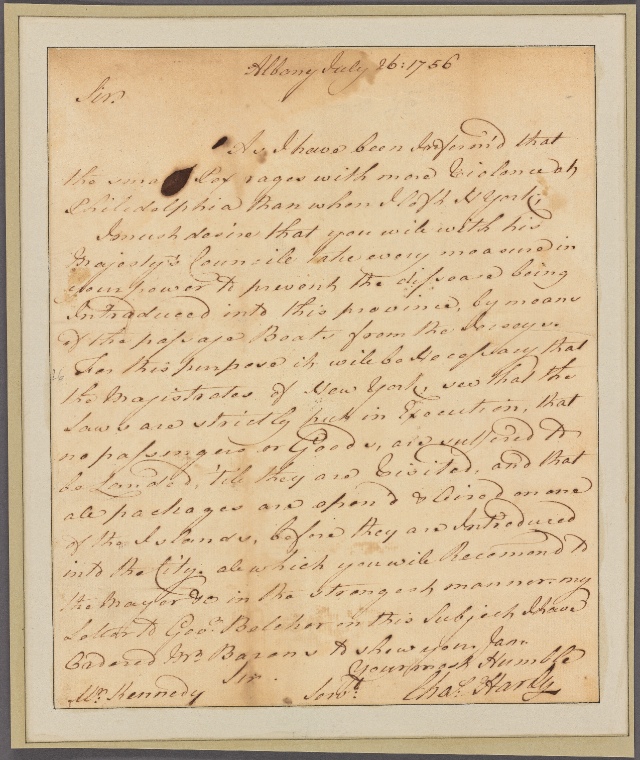 Albany July 26: 1756
Sir.
As I have been Inform'd that
the small Pox rages with more Violence at
Philidelphia than when I left N York,
I must desire that you will with his
Majesty's Councile take every measure in
your power to prevent the dissease being
Introduced into this province, by means
of the passage Boats from the Jerseys.
For this purpose it will be Necessary that
the Magistrates of New York, see that the
Laws are strictly put in Execution, that
no passengers or Goods, are suffered to
be Landed, 'till they are Visited, and that
all packages are open'd & Aired on one
of the Islands, before they are Introduced
into the City. all which you will Recomend to
the Mayor &c in the strongest manner. my
Letter to Govr. Belcher on this Subject I have
Ordered Mr Barons to shew you. I am
Your most Humble
Sir. Servt.
Mr. Kennedy Chas. Hardy